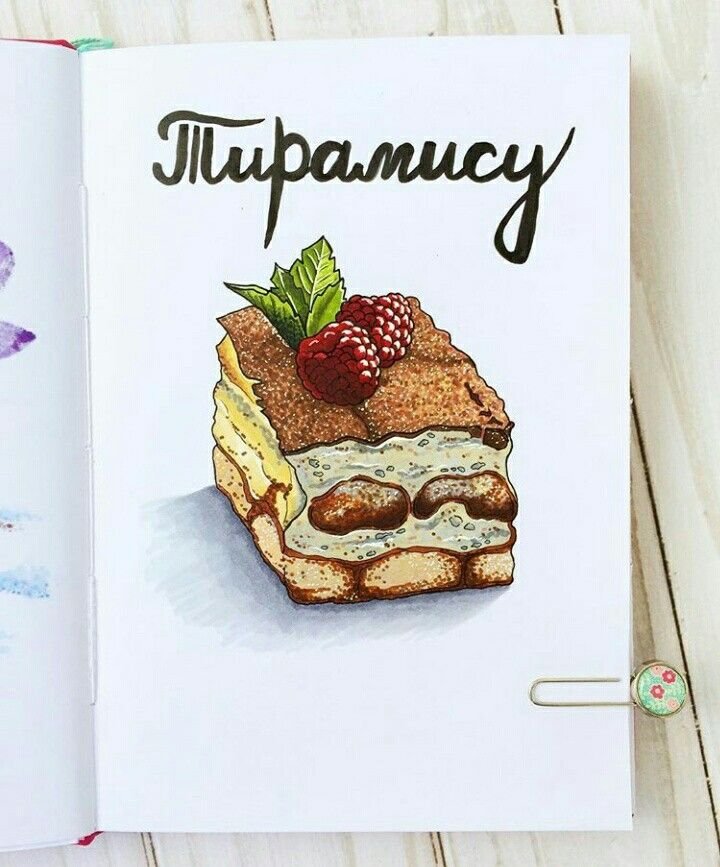 Тирамису